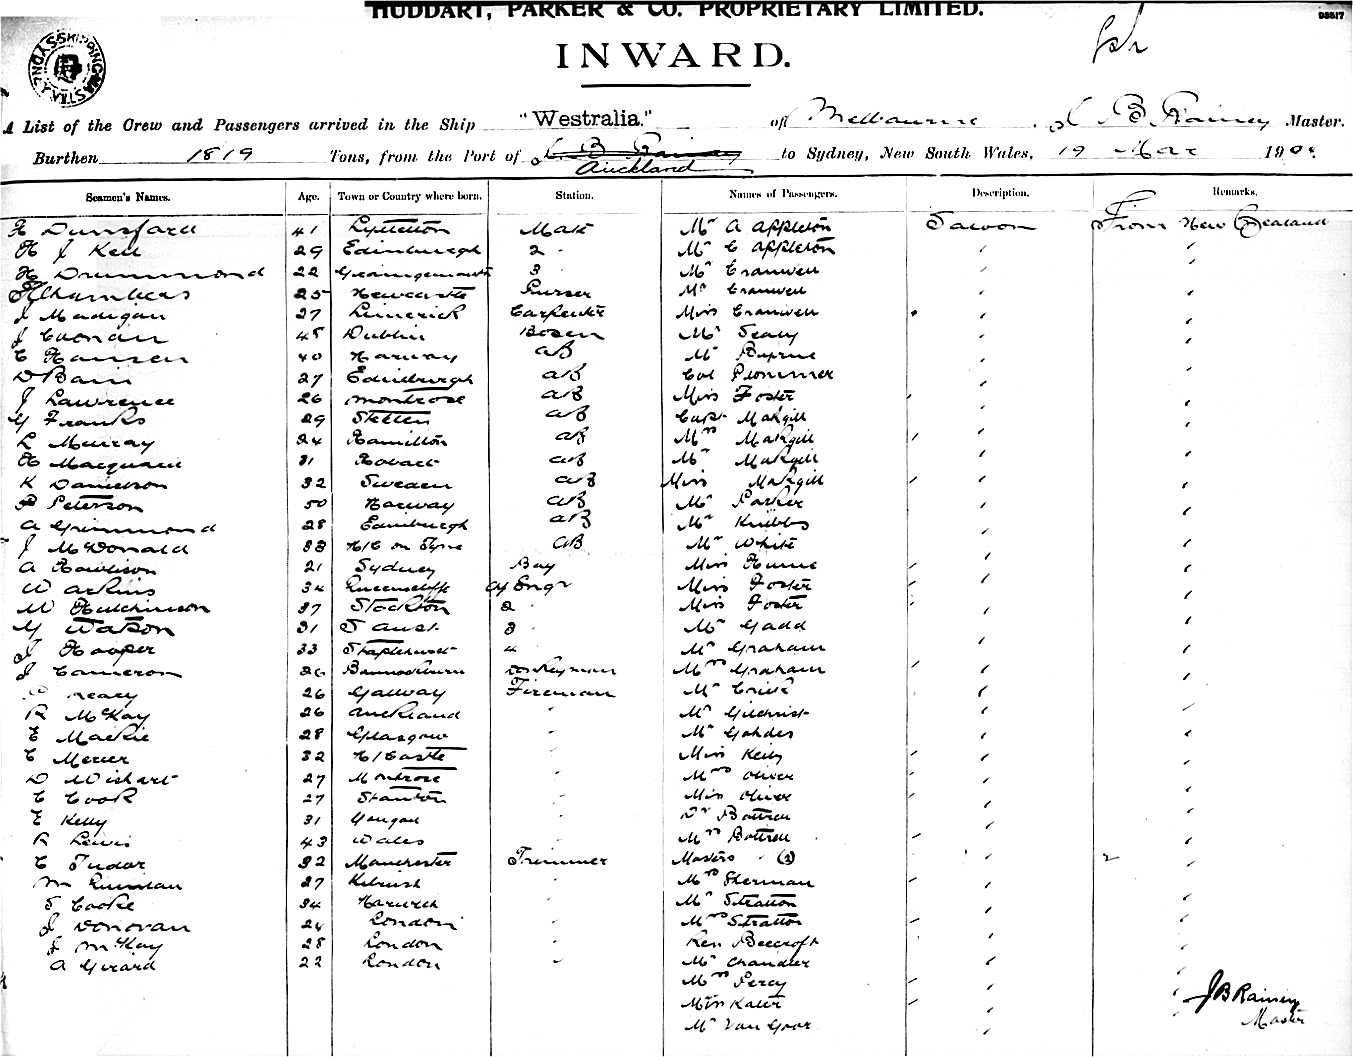 HUDDART, PARKER & CO. PROPRIETARY LIMITED.
INWARD.
A List of the Crew and Passengers arrived in the Ship "Westralia." of Melbourne, J B Rainey Master.
Burthen 1819 Tons, from the Port of J B Rainey Auckland to Sydney, New South Wales, 19 Mar 190
Seamen's Names. Age. Town or Country where born. Station. Names of Passengers. Description. Remarks.
H Dunsford 41 Lyttelton Mate Mr A Appleton Saloon From New Zealand
H J Keil 29 Edinburgh 2 " Mr C Appleton " "
H Drummond 22 Grangemouth 3 " Mr Cranwell " "
Chambers 25 Newcastle Purser Mrs Cranwell " "
J Madigan 27 Limerick Carpenter Miss Cranwell " "
J Coonan 45 Dublin Bosen Mr Sealy " "
C Hansen 40 Norway AB Mr Byrne " "
D Bain 27 Edinburgh AB Col Plommer " "
J Lawrence 26 Montrose AB Miss Foster " "
G Franks 29 Stettin AB Capt Makgill " "
L Murray 24 Hamilton AB Mrs Makgill " "
H Macquarie 31 Hobart AB Mr Makgill " "
K Danielson 32 Sweden AB Miss Makgill " "
P Peterson 50 Norway AB Mr Parker " "
A Grimmond 28 Edinburgh AB Mr Knibbs " "
J McDonald 33 N/C on Tyne AB Mr White " "
A Rawlison 21 Sydney Boy Miss Hume " "
W Askins 34 Queenscliffe Cf Engr Miss Foster " "
W Hutchinson 37 Stockton 2 " Miss Foster " "
G Watson 31 S Aust 3 " Mr Gadd " "
J Hooper 33 Staplehurst 4 " Mr Graham " "
J Cameron 26 Bannockburn Donkeyman Mrs Graham " "
Leary 26 Galway Fireman Mr " "
R McKay 26 Auckland " Mr Gilchrist " "
E Mackie 28 Glasgow " Mr Gohdes " "
C Mercer 32 N/Castle " Miss Keily " "
D Wishart 27 Montrose " Mrs Oliver " "
C Cook 27 Stanton " Miss Oliver " "
E Kelly 31 Youghal " Dr Bottrell " "
R Lewis 43 Wales " Mrs Bottrell " "
C Tudor 32 Manchester Trimmer Masters " (2) " 2 "
M 27 Kilrush " Mrs Sherman " "
S Cooke 34 Norwich " Mr Stratton " "
J Donovan 24 London " Mrs Stratton " "
J McKay 28 London " Rev Beecroft " "
A Girard 22 London " Mr Chandler " "
Mrs Percy " "
Miss Kater " "
J B Rainey
Mr Van Goor "
Master